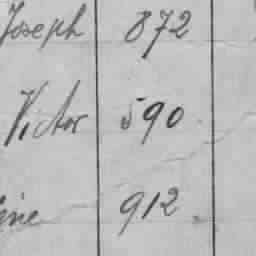 Joseph 872
Victor 590
912